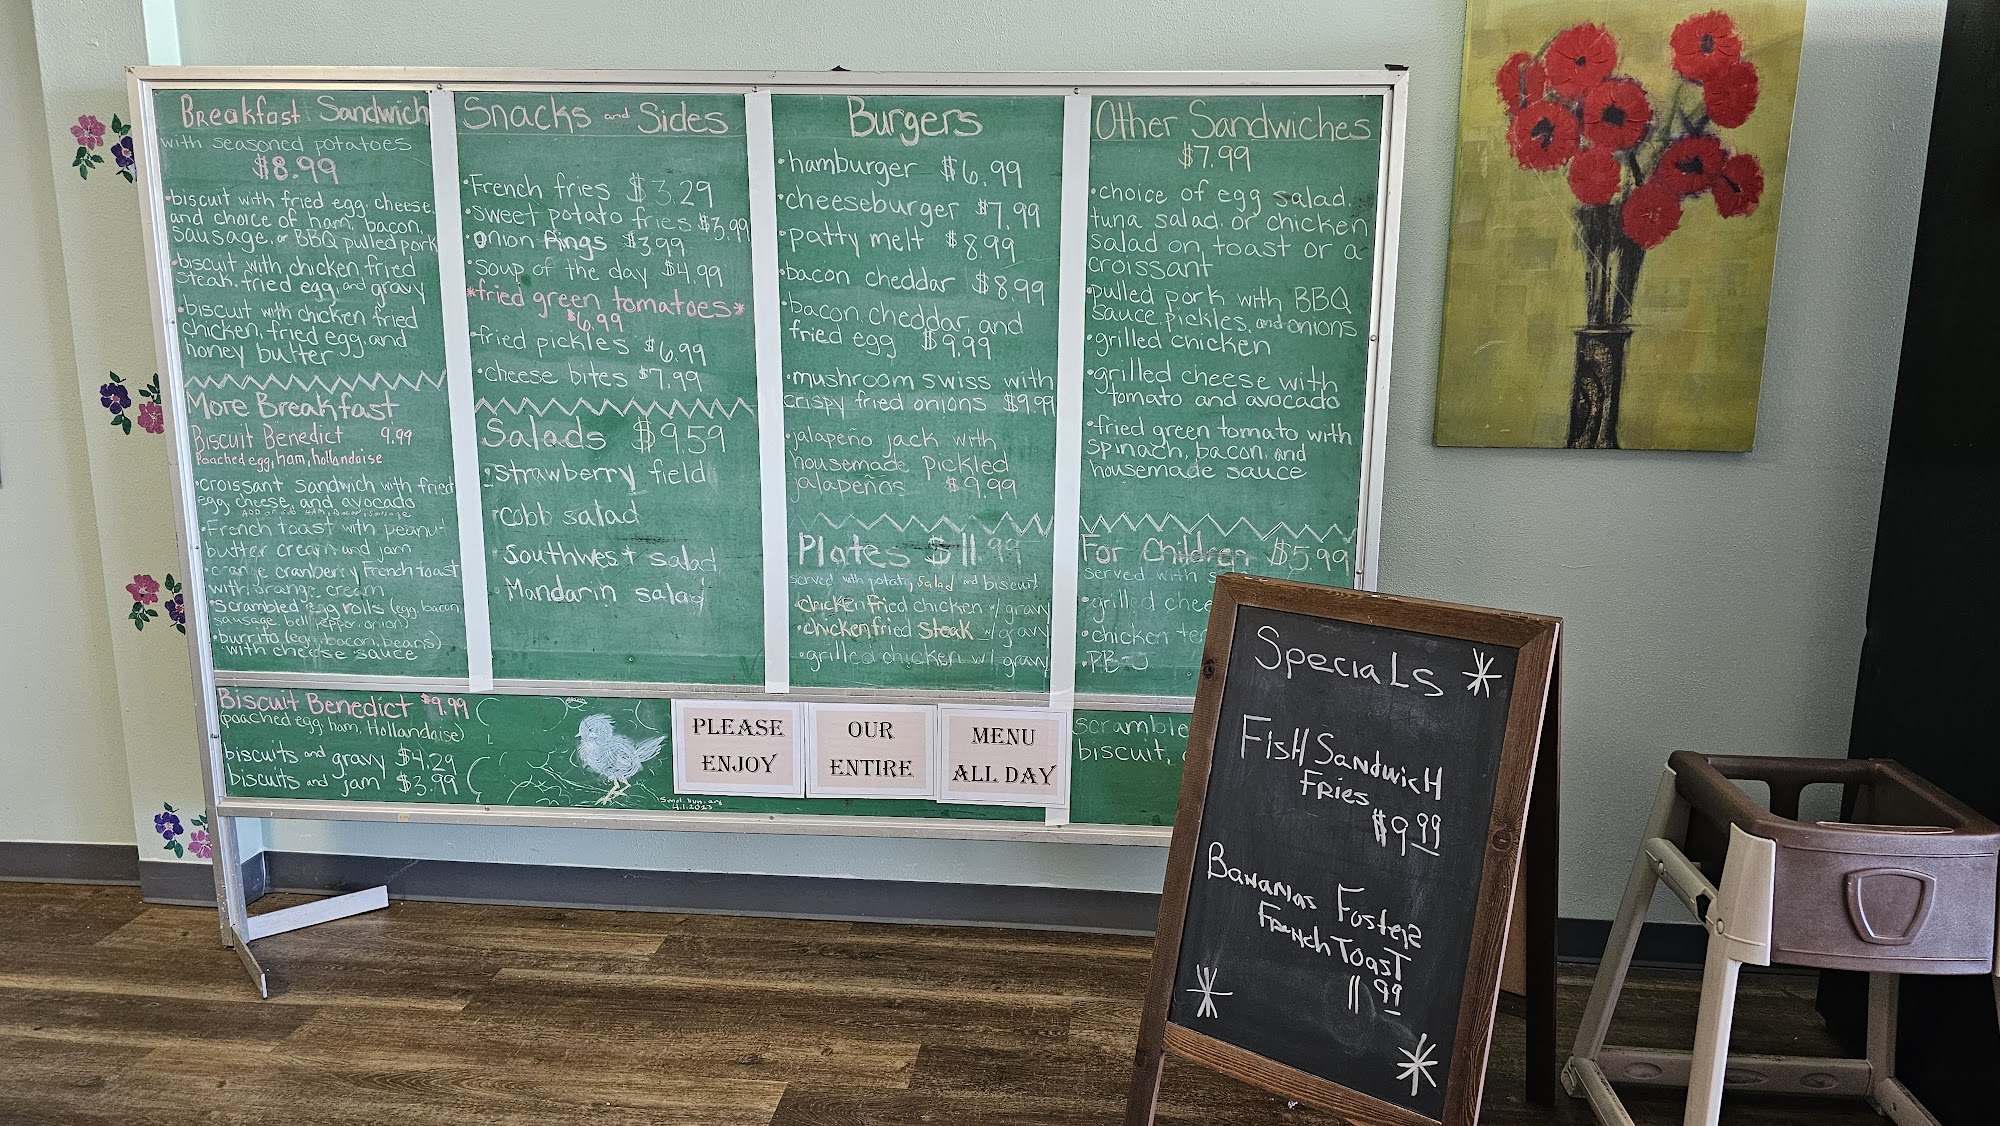 Breakfast Sandwich
with seasoned potatoes
$8.99
•biscuit with fried egg, cheese,
and choice of ham, bacon,
sausage, or BBQ pulled pork
•biscuit with chicken fried
steak, fried egg, and gravy
•biscuit with chicken fried
chicken, fried egg, and
honey butter
More Breakfast
Biscuit Benedict 9.99
Poached egg, ham, hollandaise
•croissant sandwich with fried
egg, cheese, and avocado
•French toast with peanut
butter cream and jam
•orange cranberry French toast
with orange cream
•scrambled egg rolls (egg, bacon,
sausage, bell pepper, onion)
•burrito (egg, bacon, beans)
with cheese sauce
Biscuit Benedict $9.99
(poached egg, ham, Hollandaise)
biscuits and gravy $4.29
biscuits and jam $3.99
Snacks and Sides
•French fries $3.29
•sweet potato fries $3.99
•Onion Rings $3.99
•soup of the day $4.99
*fried green tomatoes*
$6.99
•fried pickles $6.99
•cheese bites $7.99
Salads $9.59
•strawberry field
•cobb salad
•southwest salad
•Mandarin salad
Burgers
•hamburger $6.99
•cheeseburger $7.99
•patty melt $8.99
•bacon cheddar $8.99
•bacon, cheddar, and
fried egg $9.99
•mushroom swiss with
crispy fried onions $9.99
•jalapeño jack with
housemade pickled
jalapeños $9.99
Plates $11.99
served with potato, salad and biscuit
•chicken fried chicken w/ gravy
•chicken fried steak w/ gravy
•grilled chicken w/ gravy
Other Sandwiches
$7.99
•choice of egg salad,
tuna salad, or chicken
salad on toast or a
croissant
•pulled pork with BBQ
sauce, pickles, and onions
•grilled chicken
•grilled cheese with
tomato and avocado
•fried green tomato with
spinach, bacon, and
housemade sauce
For Children $5.99
served with
•grilled chee
•chicken te
•PB-J
scramble
biscuit,
PLEASE
ENJOY
OUR
ENTIRE
MENU
ALL DAY
4.1.2023
Specials
Fish Sandwich
Fries
$9.99
Bananas Foster
French Toast
11.99